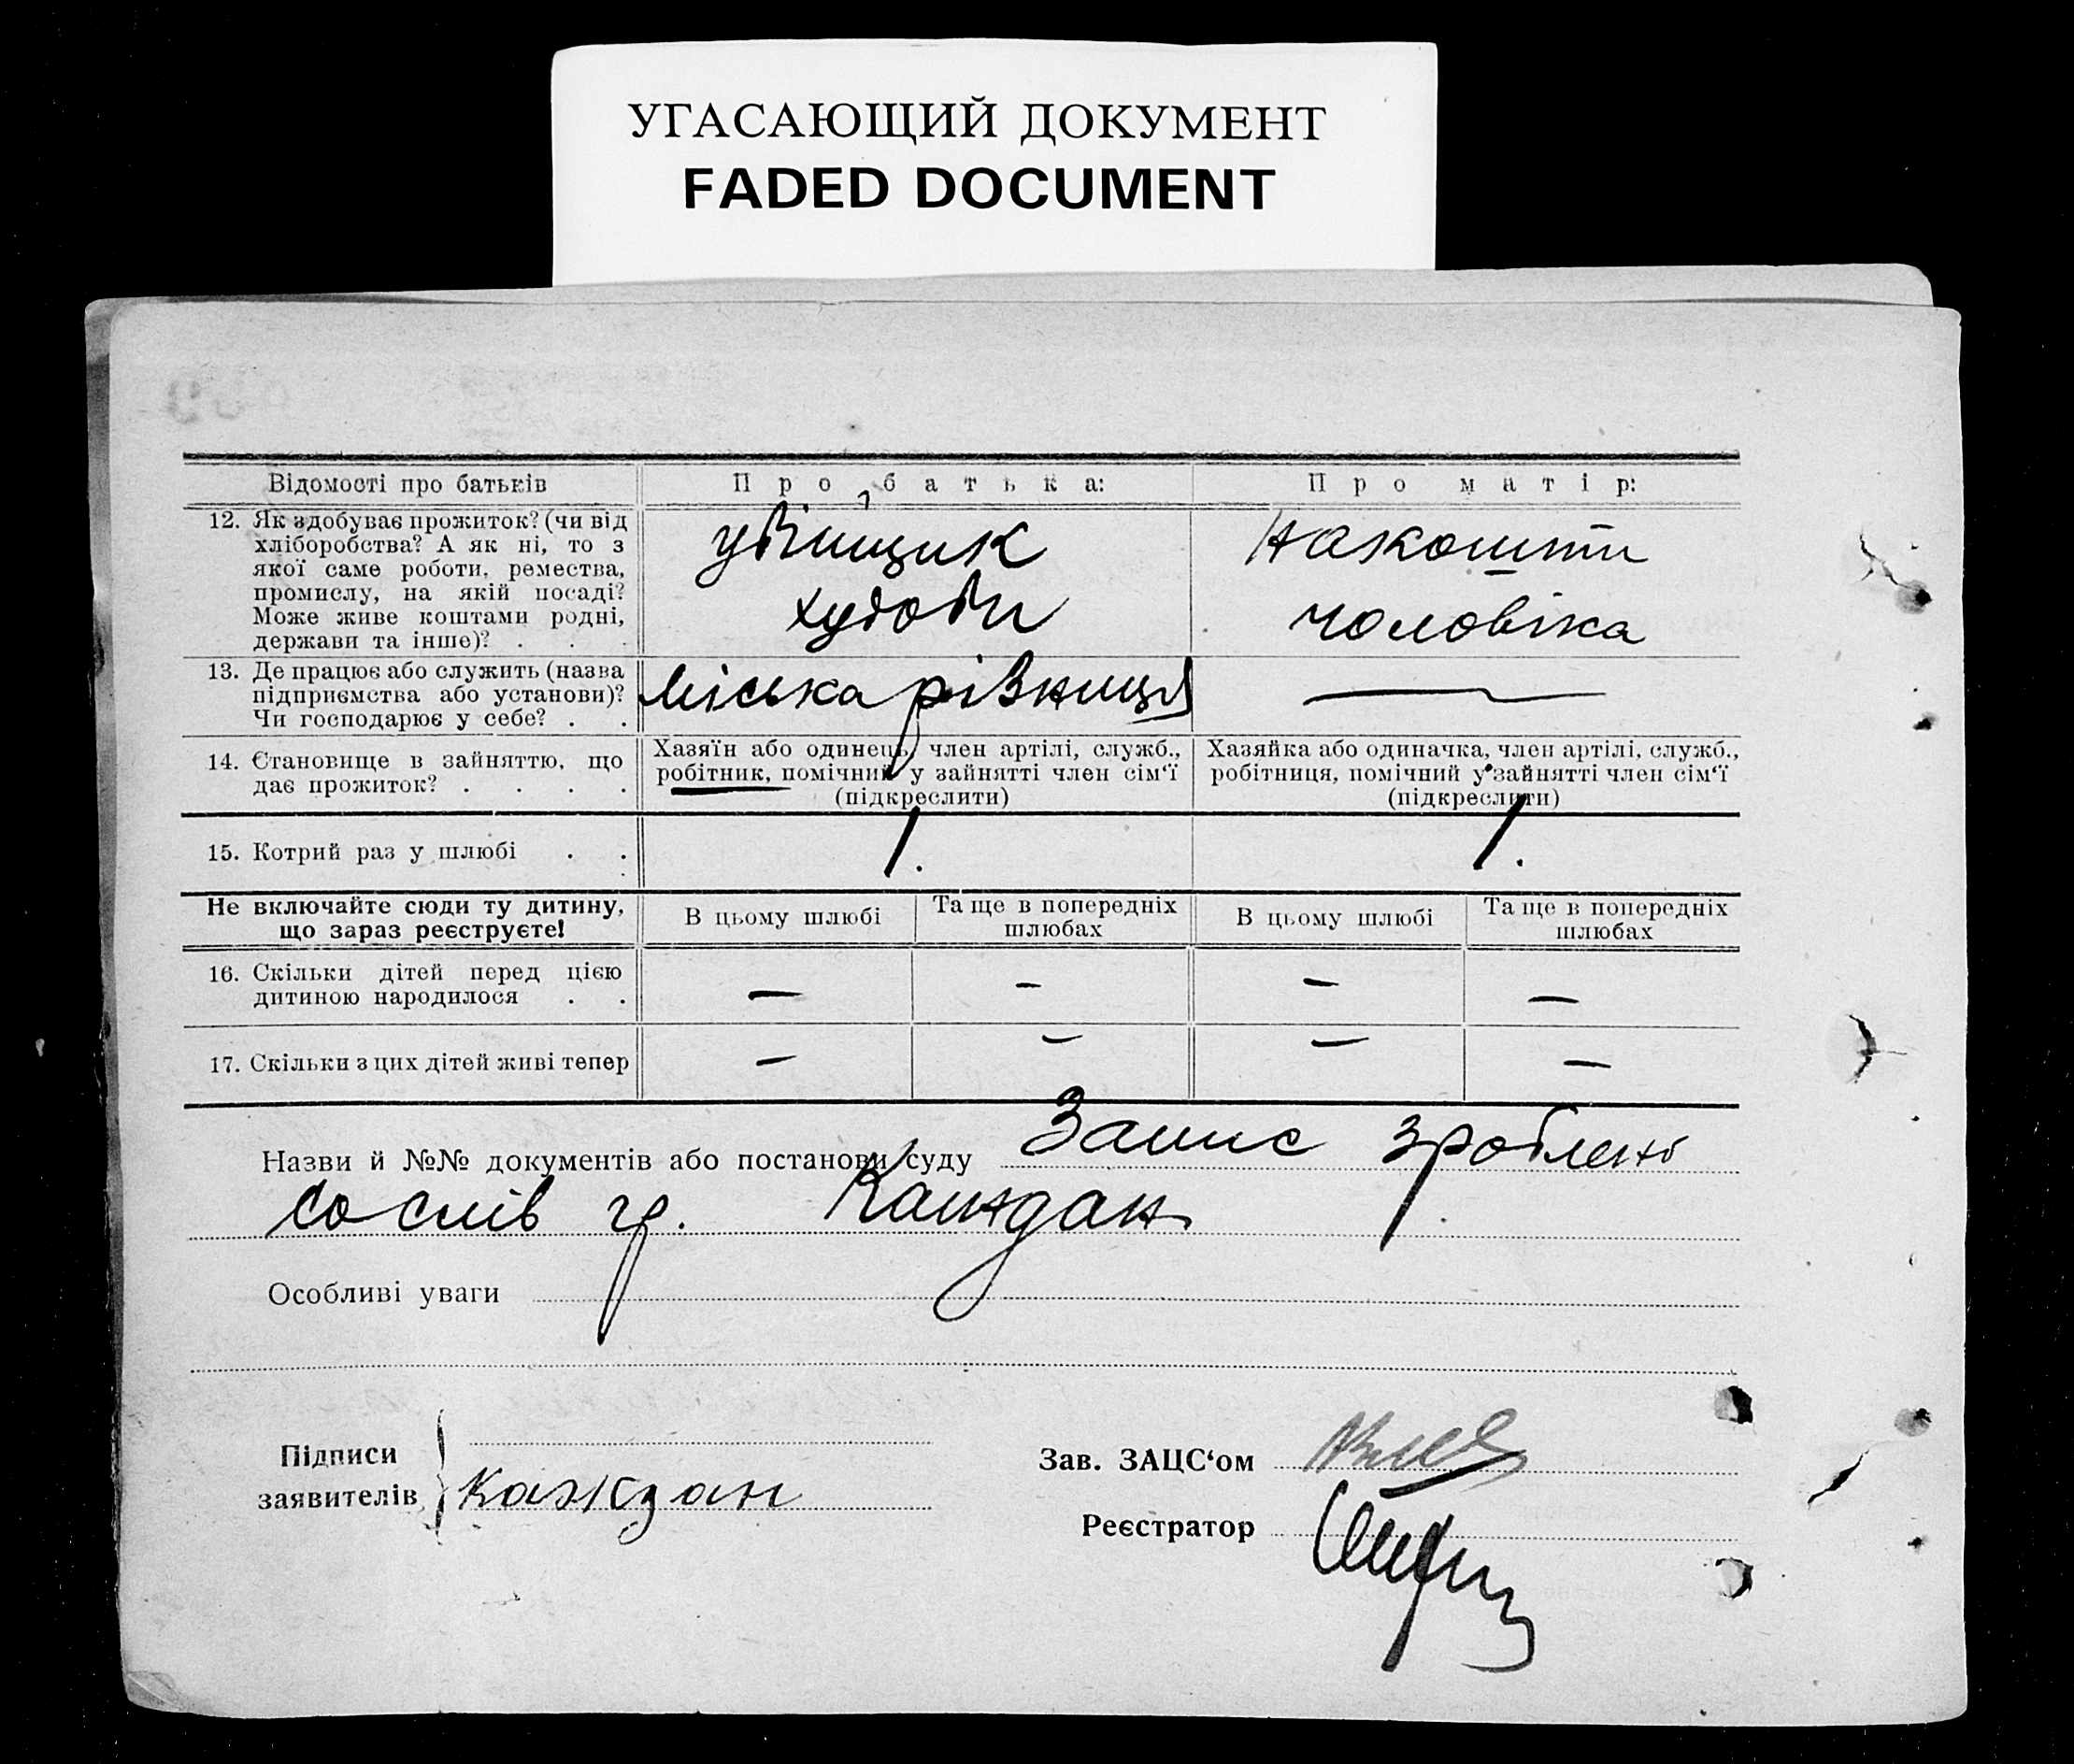 УГАСАЮЩИЙ ДОКУМЕНТ
FADED DOCUMENT
Відомості про батьків
Про батька:
Про матір:
12. Як здобуває прожиток? (чи від
хліборобства? А як ні, то з
якої саме роботи, ремества,
промислу, на якій посаді?
Може живе коштами родні,
держави та інше)? . . .
убійщик
худоби
на кошти
чоловіка
13. Де працює або служить (назва
підприємства або установи)?
Чи господарює у себе? . .
Міська різниця
—
14. Становище в зайняттю, що
дає прожиток? . . . .
Хазяїн або одинець, член артілі, служб.,
робітник, помічний у зайнятті член сім‘ї
(підкреслити)
Хазяйка або одиначка, член артілі, служб.,
робітниця, помічний у зайнятті член сім‘ї
(підкреслити)
15. Котрий раз у шлюбі . .
1.
1.
Не включайте сюди ту дитину,
що зараз реєструєте!
В цьому шлюбі
Та ще в попередніх
шлюбах
В цьому шлюбі
Та ще в попередніх
шлюбах
16. Скільки дітей перед цією
дитиною народилося . .
— — — —
17. Скільки з цих дітей живі тепер
— — — —
Назви й №№ документів або постанови суду Запис зроблено
со слів гр. Каждан
Особливі уваги
Підписи
заявителів
Каждан
Зав. ЗАЦС‘ом
Реєстратор